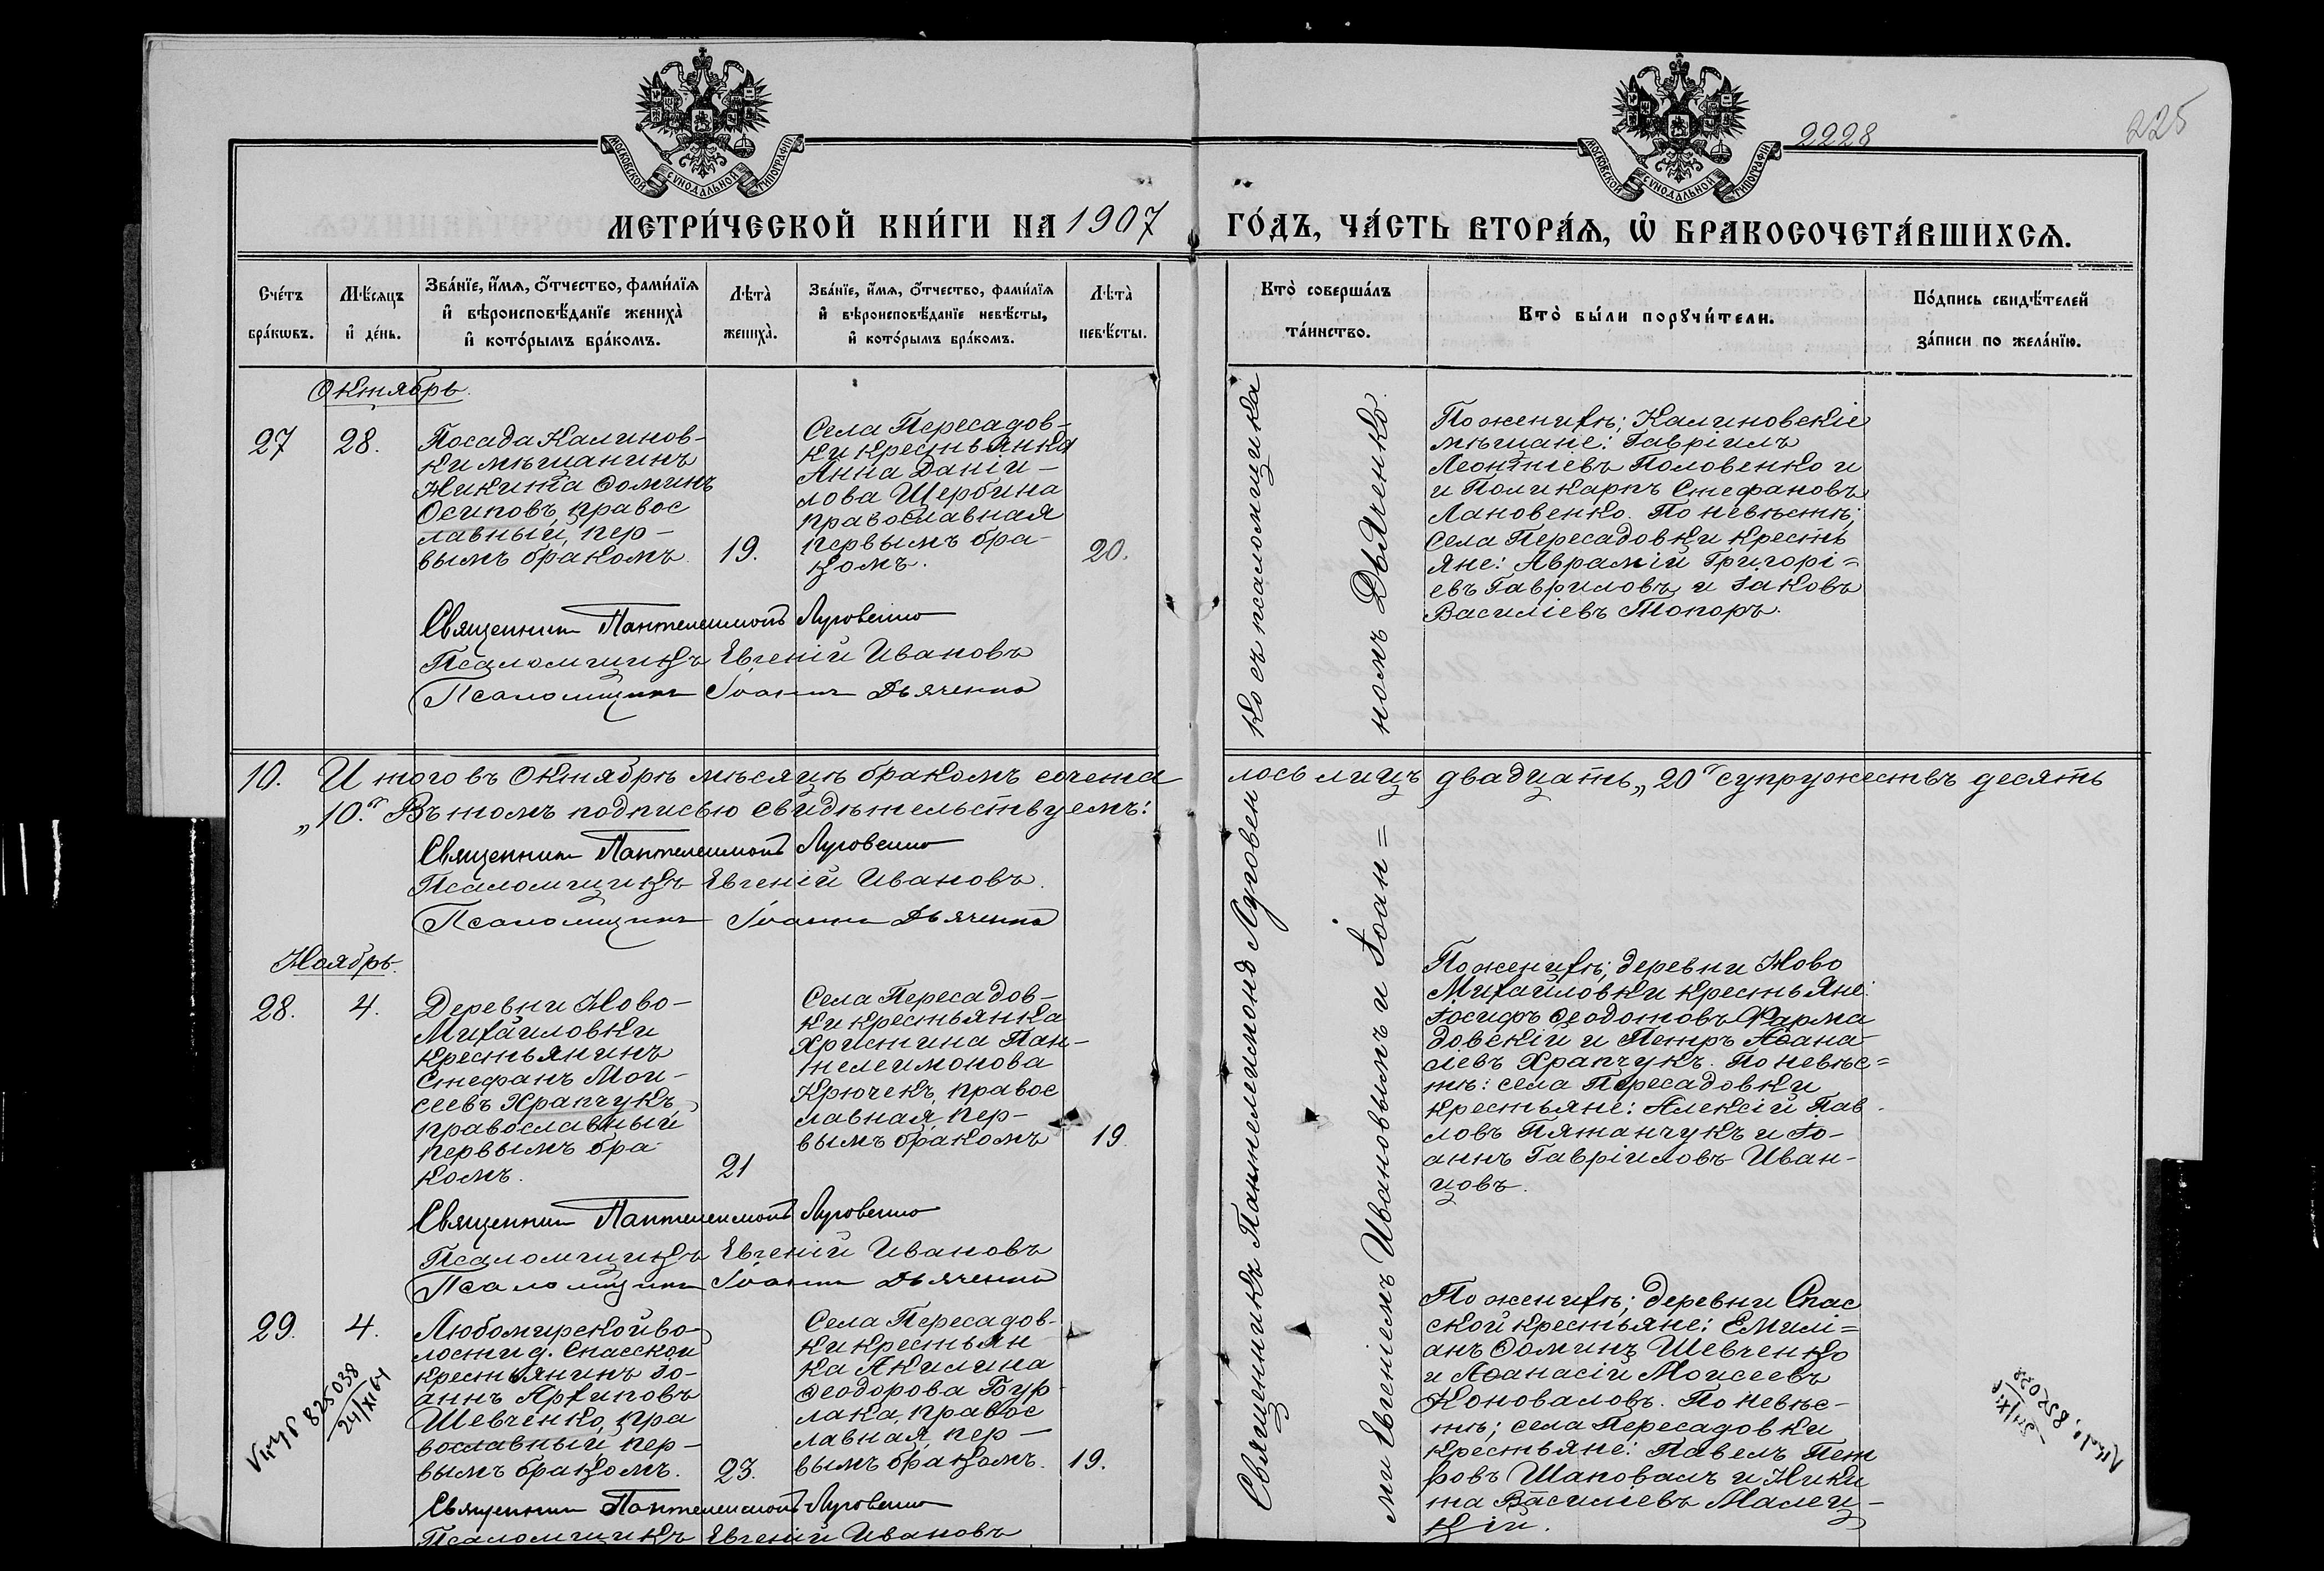 2228
225
МОСКОВСКОЙ СѴНОДАЛЬНОЙ ТИПОГРАФІИ
МОСКОВСКОЙ СѴНОДАЛЬНОЙ ТИПОГРАФІИ
МЕТРИ́ЧЕСКОЙ КНИ́ГИ НА 1907 ГО́ДЪ, ЧА́СТЬ ВТОРА́Ѧ, Ѡ҆ БРАКОСОЧЕТА́ВШИХСѦ.
Сче́тъ бра́кѡвъ.
Мѣ́сяцъ и҆ де́нь.
Зва́нїе, и҆́мѧ, ѻ҆́тчество, фами́лїѧ и҆ вѣроисповѣ́данїе жениха̀ и҆ кото́рымъ бра́комъ.
Лѣта̀ жениха̀.
Зва́нїе, и҆́мѧ, ѻ҆́тчество, фами́лїѧ и҆ вѣроисповѣ́данїе невѣ́сты, и҆ кото́рымъ бра́комъ.
Лѣта̀ невѣ́сты.
Кто̀ соверша́лъ та́инство.
Кто̀ бы́ли порꙋчи́тели.
По́дпись свидѣ́телей за́писи по жела́нїю.
Октябрь.
27
28.
Посада Калинов-
ки мѣщанинъ
Никита Ѳоминъ
Осиповъ, правос
лавный, пер-
вымъ бракомъ.
19.
Села Пересадов-
ки крестьянка
Анна Даніи-
лова Щербина
православная
первымъ бра-
комъ.
20.
По женихѣ; Калиновскіе
мѣщане: Гавріилъ
Леонтіевъ Половенко и
и Поликарпъ Стефановъ
Лановенко. По невѣстѣ;
Села Пересадовки кресть
яне: Аврамій Григорі=
евъ Гавриловъ и Іаковъ
Василіевъ Топоръ.
Священникъ Пантелеимонъ Луговенко
Псаломщикъ Евгеній Ивановъ
Псаломщикъ Іоаннъ Дьяченко
10. Итого въ Октябрѣ мѣсяцѣ бракомъ сочета лось лицъ двадцать „20“ супружествъ десять
„10.“ Въ томъ подписью свидѣтельствуемъ:
Священникъ Пантелеимонъ Луговенко
Псаломщикъ Евгеній Ивановъ.
Псаломщикъ Іоаннъ Дьяченко
Ноябрь.
28.
4.
Деревни Ново-
Михайловки
крестьянинъ
Стефанъ Мои-
сеевъ Храпчукъ,
православный
первымъ бра
комъ.
21
Села Пересадов-
ки крестьянка
Христина Пан-
телеимонова
Крючекъ, правос
лавная, пер-
вымъ бракомъ
19.
По женихѣ; деревни Ново
Михайловки крестьяне:
Іосифъ Ѳеодотовъ Фарма
довскій и Петръ Аѳана-
сіевъ Храпчукъ. По невѣс=
тѣ: села Пересадовки
крестьяне: Алексій Пав
ловъ Пятанчукъ и Іо-
аннъ Гавріиловъ Иван-
цовъ.
Священникъ Пантелеимонъ Луговенко
Псаломщикъ Евгеній Ивановъ
Псаломщикъ Іоаннъ Дьяченко
29.
4.
825038
24/XI 64
Любомирской во-
лости д. Спасской
крестьянинъ Іо-
аннъ Архиповъ
Шевченко, пра
вославный пер-
вымъ бракомъ.
23.
Села Пересадов-
ки крестьян
ка Акилина
Ѳеодорова Бур
лака, правос
лавная, пер-
вымъ бракомъ.
19.
По женихѣ; деревни Спас
ской крестьяне: Емилі=
анъ Ѳоминъ Шевченко
и Аѳанасій Моисеевъ
Коноваловъ. По невѣс-
тѣ; села Пересадовки
крестьяне: Павелъ Пет
ровъ Шаповалъ и Ники
та Василіевъ Малец-
кій.
Священникъ Пантелеимонъ Луговенко
Псаломщикъ Евгеній Ивановъ
Священникъ Пантелеимонъ Луговен ко съ псаломщика
ми Евгеніемъ Ивановымъ и Іоан= номъ Дьяченко.